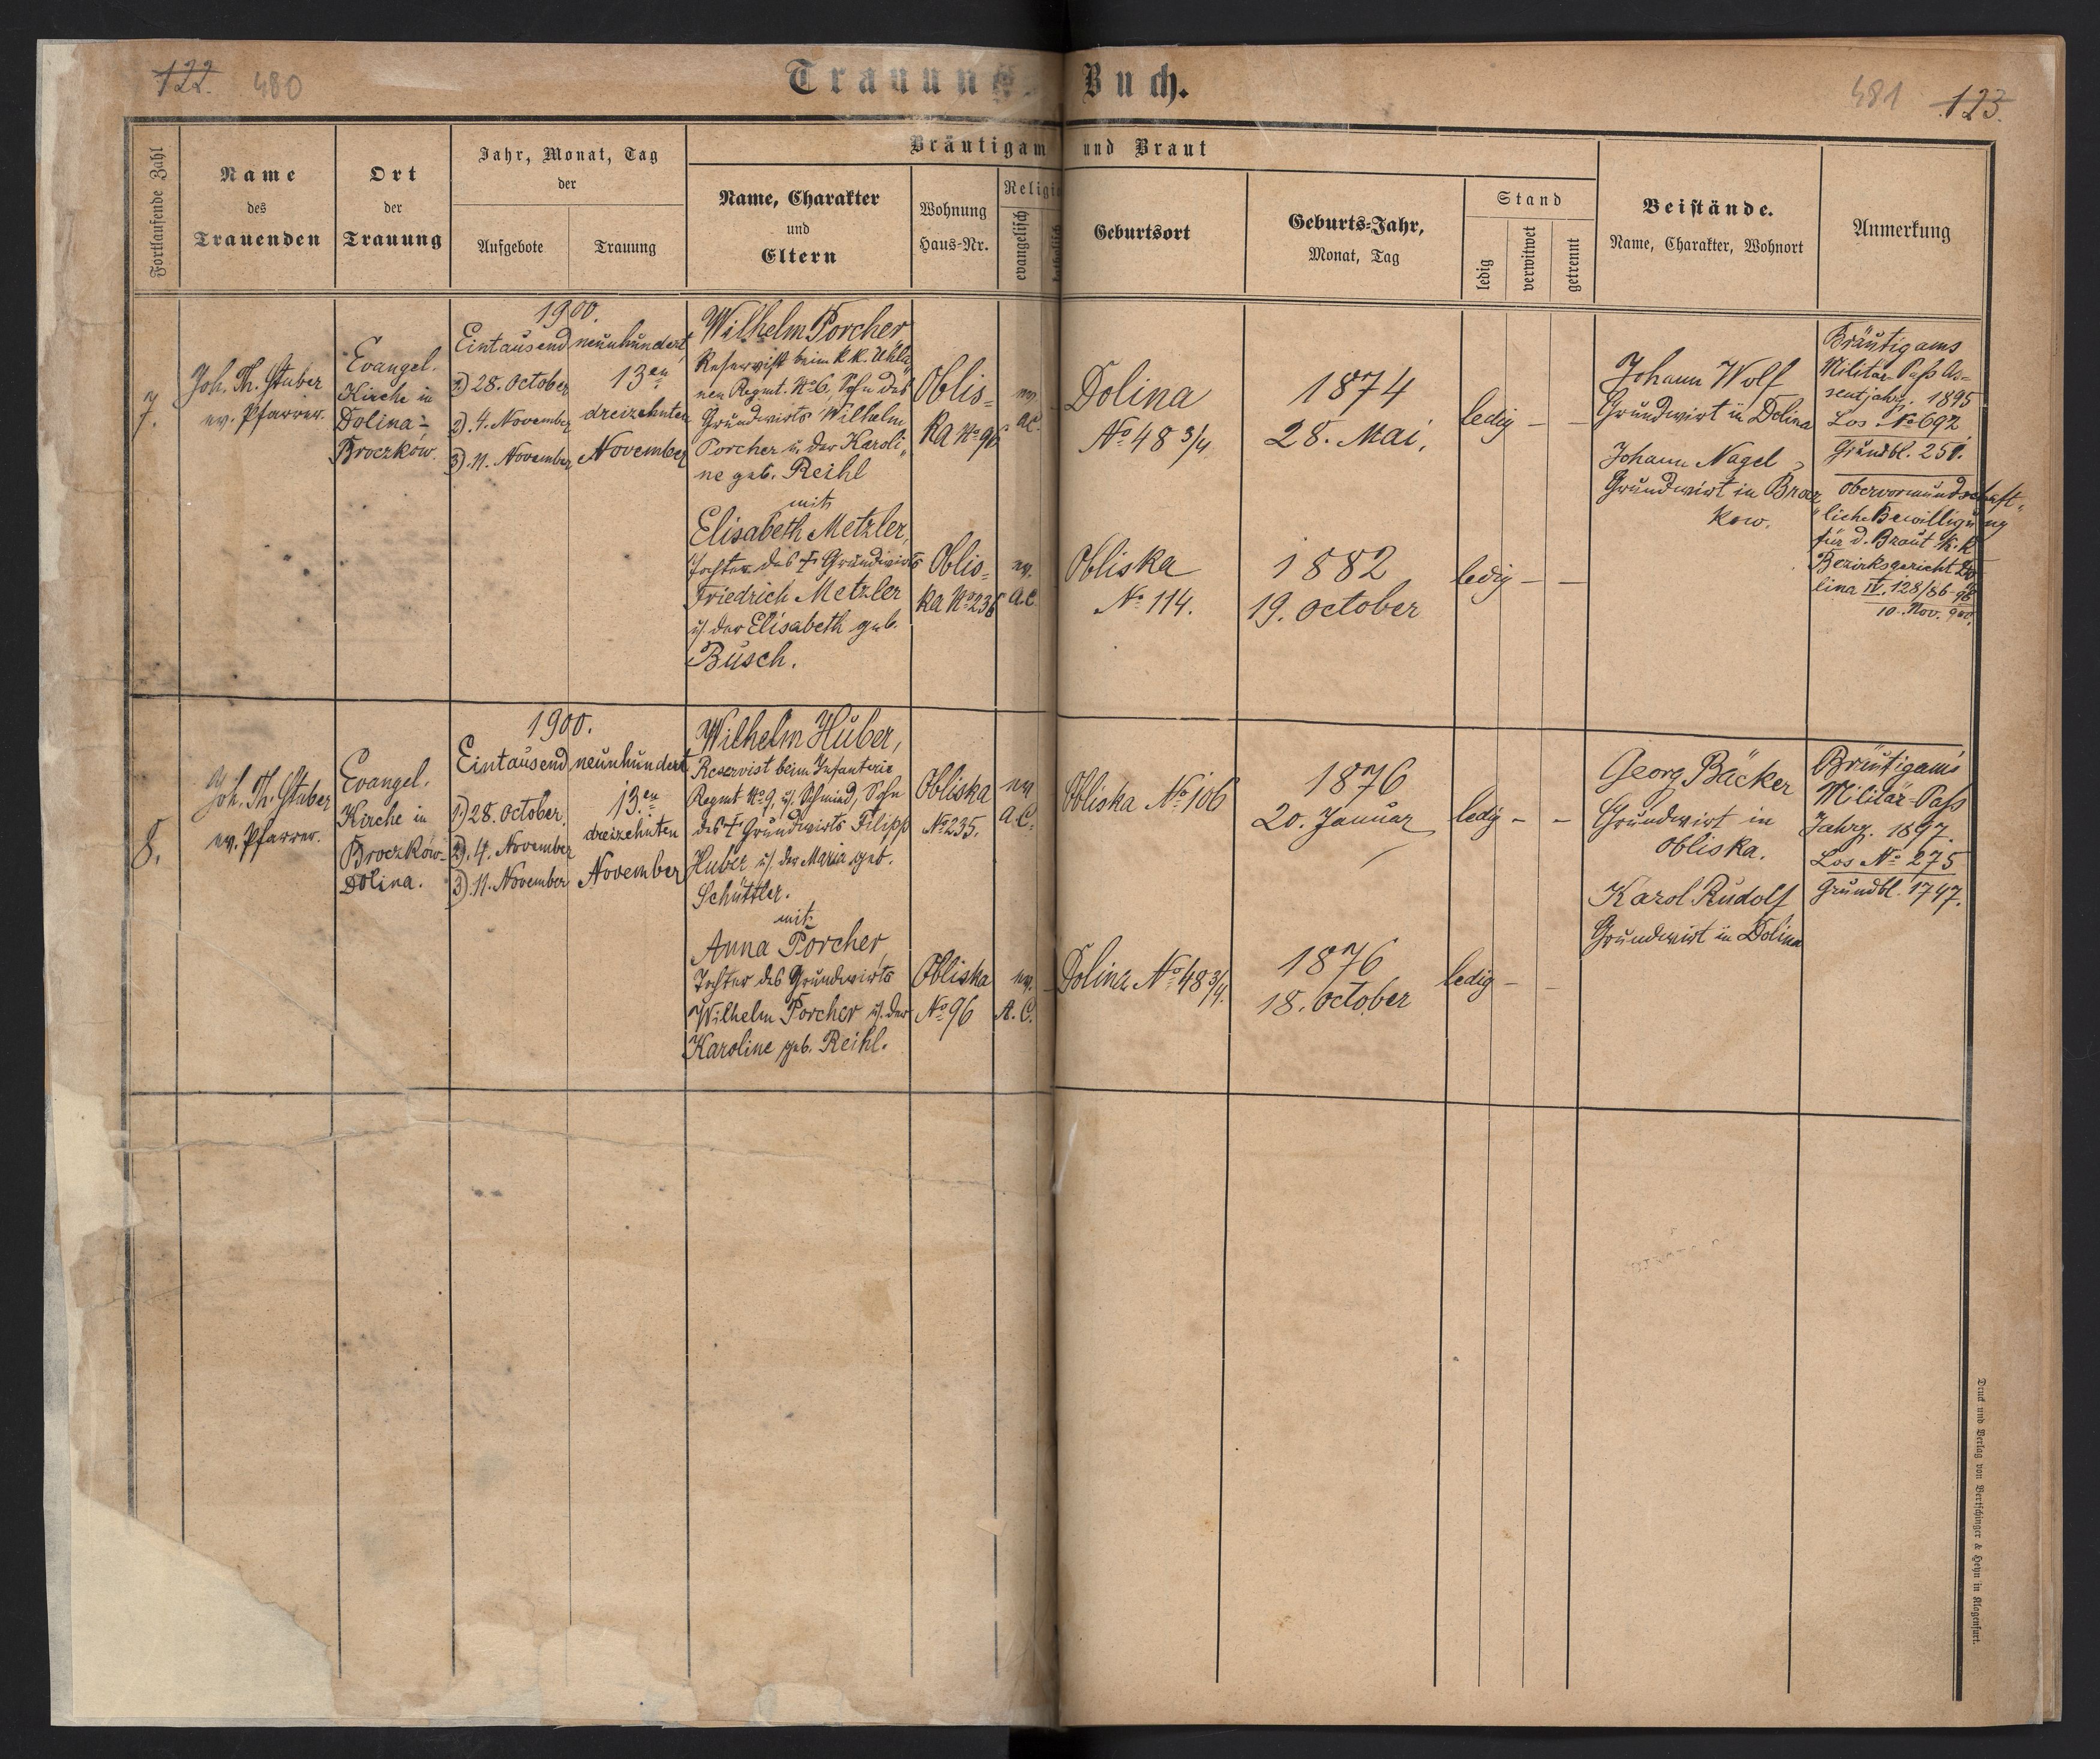 122. 480
Trauungs-Buch.
481 123.
Fortlaufende Zahl
Name
des
Trauenden
Ort
der
Trauung
Jahr, Monat, Tag
der
Aufgebote
Trauung
Bräutigam und Braut
Name, Charakter
und
Eltern
Wohnung
Haus-Nr.
Religi
evangelisch
katholisch
Geburtsort
Geburts-Jahr,
Monat, Tag
Stand
ledig
verwitwet
getrennt
Beistände.
Name, Charakter, Wohnort
Anmerkung
7.
Joh. Th. Stuber
ev. Pfarrer.
Evangel.
Kirche in
Dolina-
Broczków.
1900.
Eintausend neunhundert
1) 28. October
2) 4. November
3) 11. November
13en
dreizehnten
November
Wilhelm Porcher
Reservist beim k. k. Uhla„
nen Regmt. No 6, Sohn des
Grundwirts Wilhelm
Porcher u. der Karoli„
ne geb. Reihl
mit
Elisabeth Metzler,
Tochter des † Grundwirts
Friedrich Metzler
u. der Elisabeth geb.
Busch.
Oblis=
ka No 96
ev.
A.C.
Oblis=
ka No 236
ev.
A.C.
Dolina
No 48 3/4
Obliska
No 114.
1874
28. Mai.
1882
19. October
ledig - -
ledig - -
Johann Wolf
Grundwirt in Dolina
Johann Nagel,
Grundwirt in Brocz
kow.
Bräutigams
Militär Pass As=
sentjahrg. 1895
Los No 692
Grundbl. 251.
Obervormundschaft„
liche Bewilligung
für d. Braut k. k.
Bezirksgericht Do
lina IV. 128/86
10. Nov. 900.
8.
Joh. Th. Stuber
ev. Pfarrer.
Evangel.
Kirche in
Broczkow-
Dolina.
1900.
Eintausend neunhundert
1) 28. October.
2) 4. November
3) 11. November
13.en
dreizehnten
November
Wilhelm Huber,
Reservist beim Infanterie
Regmt No 9, u. Schmied, Sohn
des † Grundwirts Filipp
Huber u. der Maria geb.
Schüttler.
mit
Anna Porcher,
Tochter des Grundwirts
Wilhelm Porcher u. der
Karoline geb. Reihl.
Obliska
No 235.
ev.
A.C.
Obliska
No 96
ev.
A.C.
Obliska No 106
Dolina No 48 3/4.
1876
20. Januar
1876
18. October
ledig - -
ledig - -
Georg Bäcker
Grundwirt in
Obliska.
Karol Rudolf
Grundwirt in Dolina
Bräutigams
Militär-Pass
Jahrg. 1897.
Los No 275
Grundbl. 1747.
Druck und Verlag von Bertschinger & Heyn in Klagenfurt.